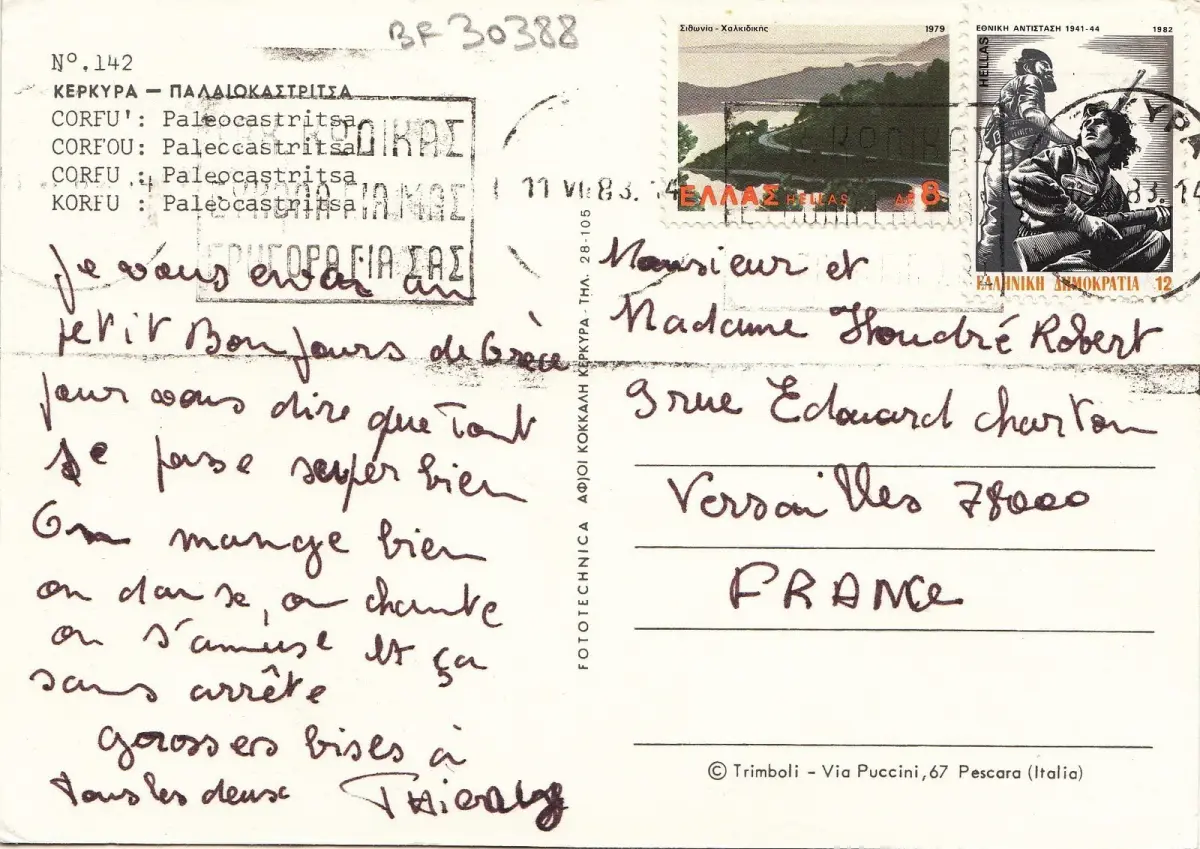 BF 30388
Nº.142
ΚΕΡΚΥΡΑ — ΠΑΛΑΙΟΚΑΣΤΡΙΤΣΑ
CORFU': Paleocastritsa
CORFOU: Paleocastritsa
CORFU : Paleocastritsa
KORFU : Paleocastritsa
ΚΩΔΙΚΑΣ
ΕΥΚΟΛΑ ΓΙΑ ΜΑΣ
ΓΡΗΓΟΡΑ ΓΙΑ ΣΑΣ
11 VII 83. 14
Σιθωνία - Χαλκιδικής 1979
ΕΛΛΑΣ HELLAS ΔΡ 8
ΕΘΝΙΚΗ ΑΝΤΙΣΤΑΣΗ 1941-44 1982
HELLAS
ΕΛΛΗΝΙΚΗ ΔΗΜΟΚΡΑΤΙΑ 12
ΥΡΑ
83. 14
Je vous envoi un
petit Bonjours de Grèce
pour vous dire que Tout
se passe super bien
On mange bien
on danse, on chante
on s'amuse et ça
sans arrête
grosses bises à
tous les deux Thierry
FOTOTECHNICA ΑΦ)ΟΙ ΚΟΚΚΑΛΗ ΚΕΡΚΥΡΑ - ΤΗΛ. 28-105
Monsieur et
Madame Houdré Robert
9 rue Edouard charton
Versailles 78000
FRANCe
© Trimboli - Via Puccini, 67 Pescara (Italia)